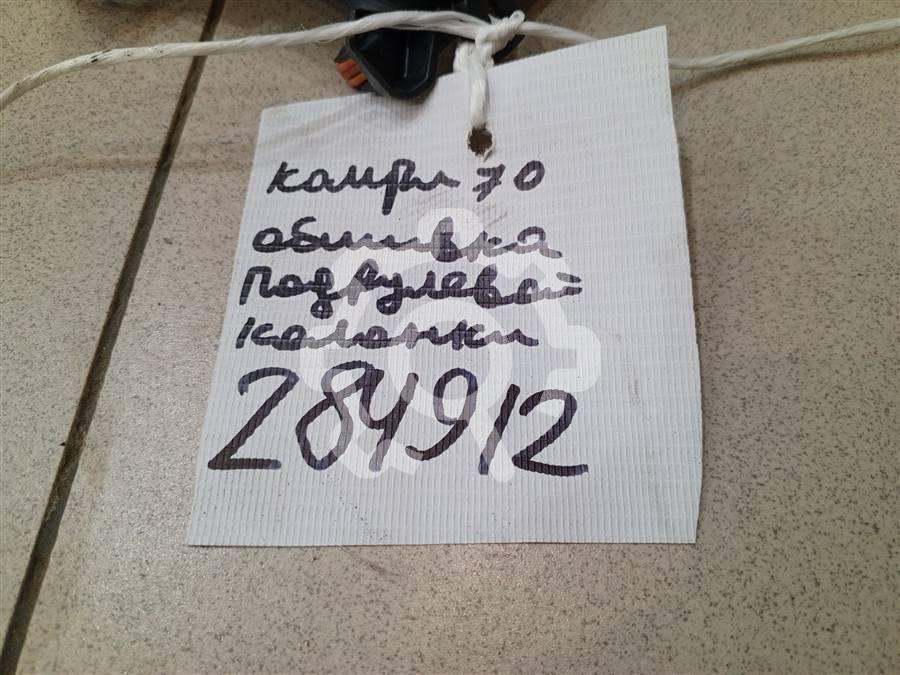 камри 70
обшивка
подрулевой
колонки
284912